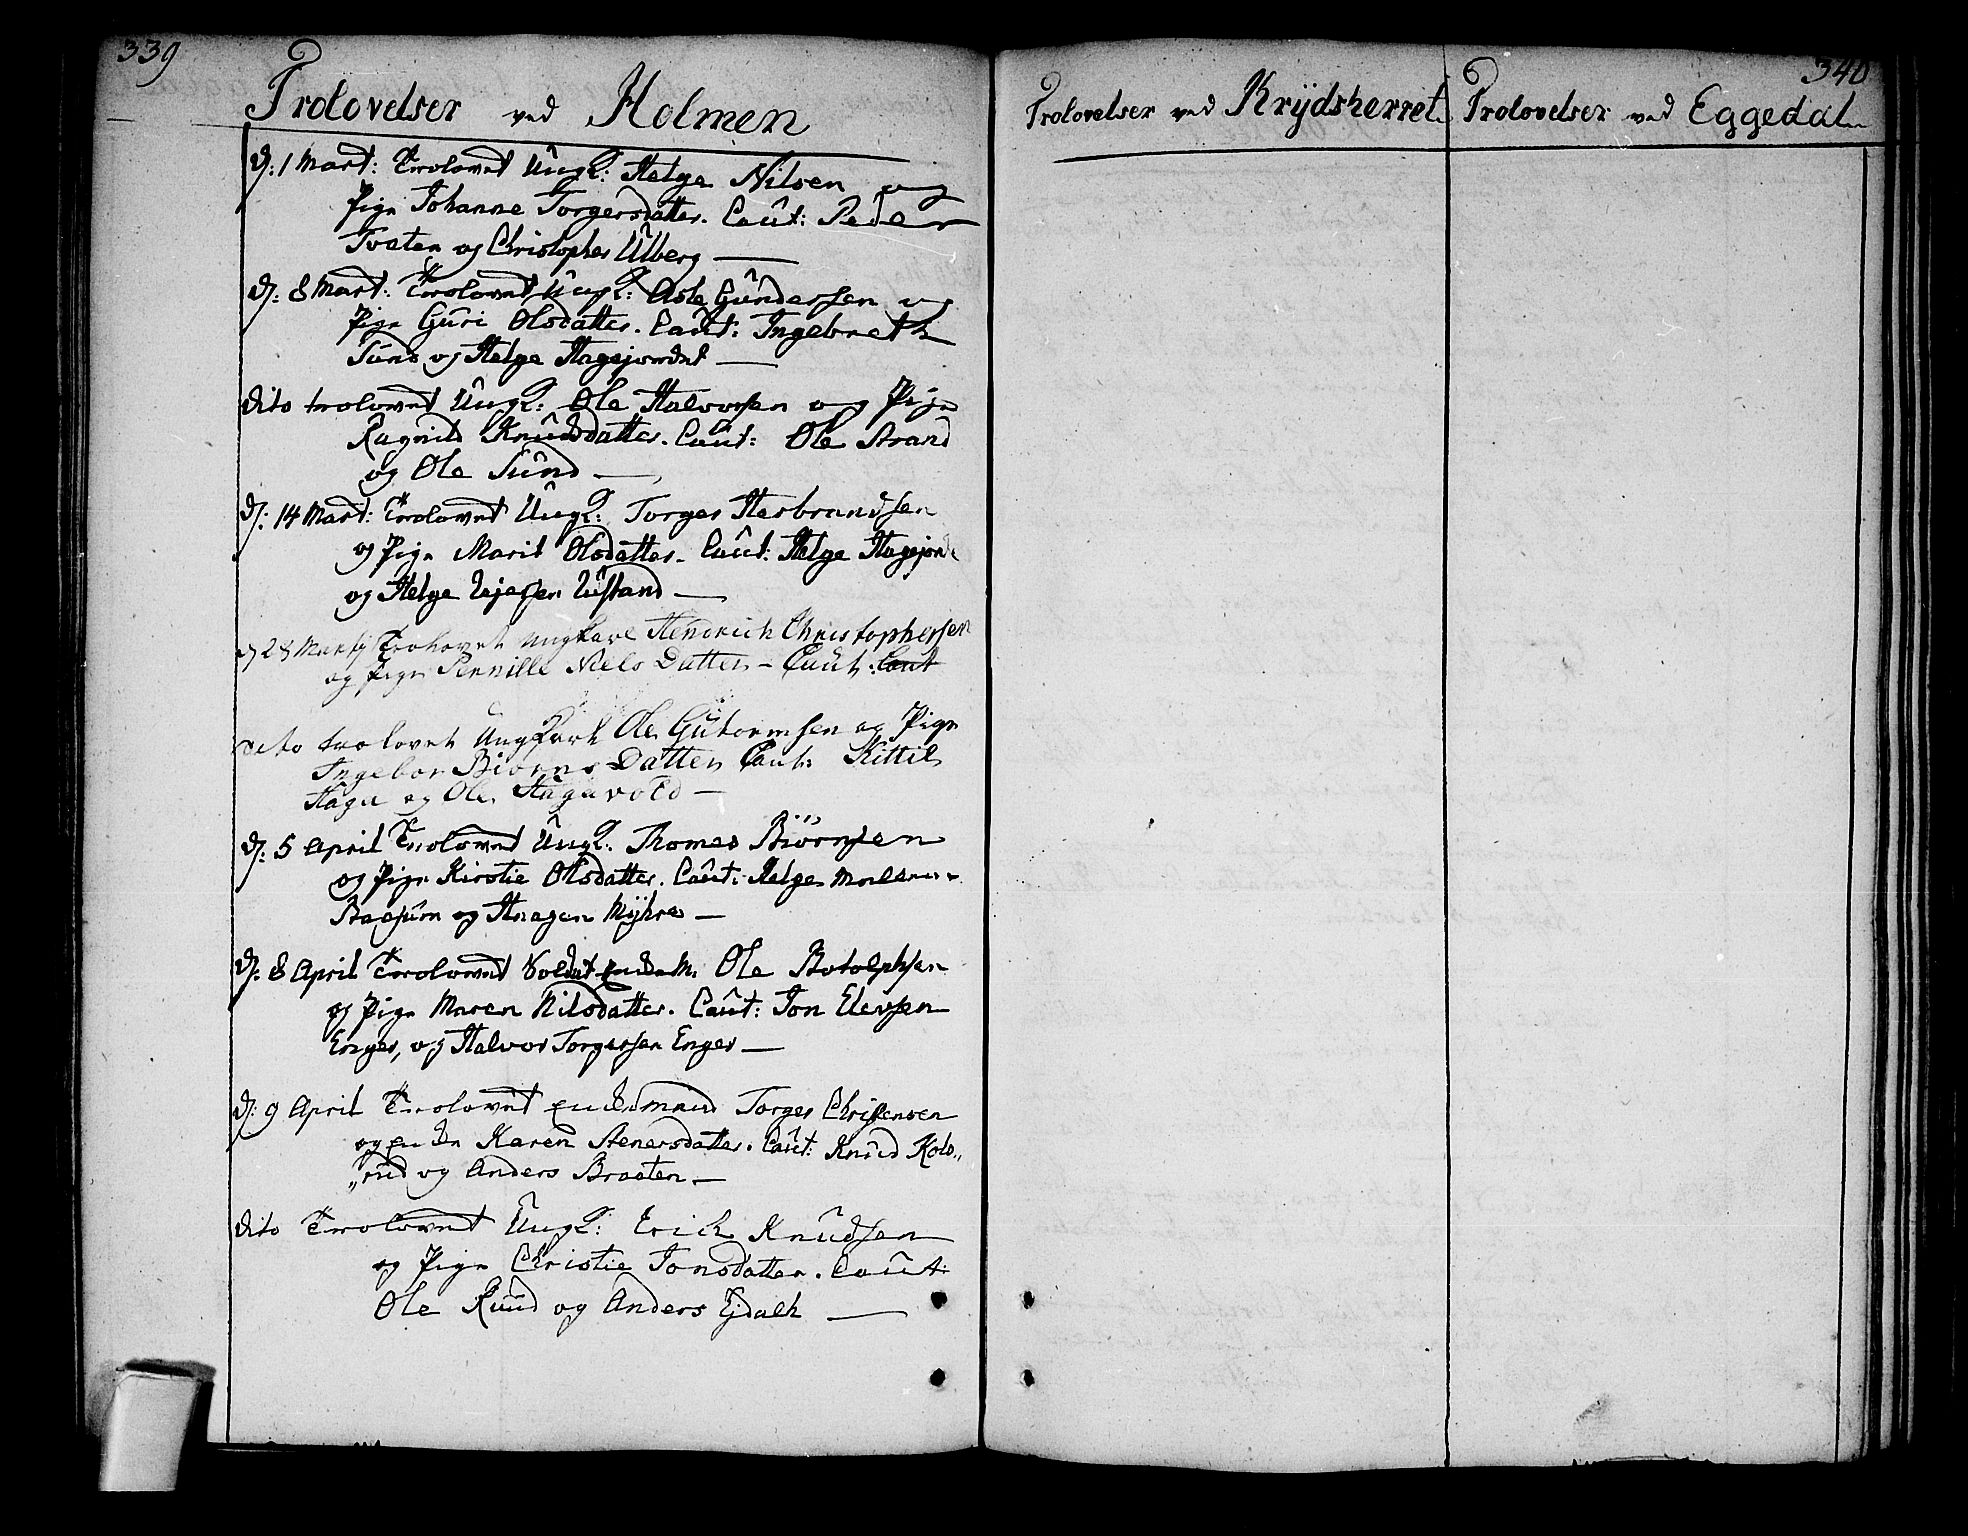 339
Trolovelser ved Holmen
d: 1 Mart: Trolovet Ungk: Helge Nilsen og
Pige Johanne Torgersdatter. Caut: Peder
Tveten og Christopher Ulberg —
d: 8 Mart: Trolovet Ungk: Asle Gundersen og
Pige Guri Olsdatter. Caut: Ingebreth
Sund og Helge Hagejordet —
dito trolovet Ungk: Ole Halvorsen og Pige
Ragnild Knudsdatter. Caut: Ole Strand
og Ole Sund —
d: 14 Mart: Trolovet Ungk: Torger Herbrandsen
og Pige Marit Olsdatter. Caut: Helge Hagejorde
og Helge
d 28 Martij Trolovet Ungkarl Hendrich Christophersen
og Pige Pernille Niels Datter – Caut: Caut
dito trolovet Ungkarl Ole Gutormsen og Pige
Ingebor Biørns Datter Caut: Kittil
Haga og Ole Hagavold —
d: 5 April Trolovet Ungk: Thomas Biørnsen
og Pige Kirstie Olsdatter. Caut: Helge
og Myhre —
d: 8 April Trolovet Soldat Ole Botolphsen
og Pige Maren Nilsdatter. Caut: Jon Elevsen
Enger, og Halvor Torgersen Enger —
d: 9 April Trolovet Enckemand Torger Christensen
og Encke Karen Stenersdatter. Caut: Knud Kols„
„rud og Anders Braaten —
dito Trolovet Ungk: Erich Knudsen
og Pige Christie Jonsdatter. Caut:
Ole Ruud og Anders —
340
Trolovelser ved Krydsherret
Trolovelser ved Eggedal